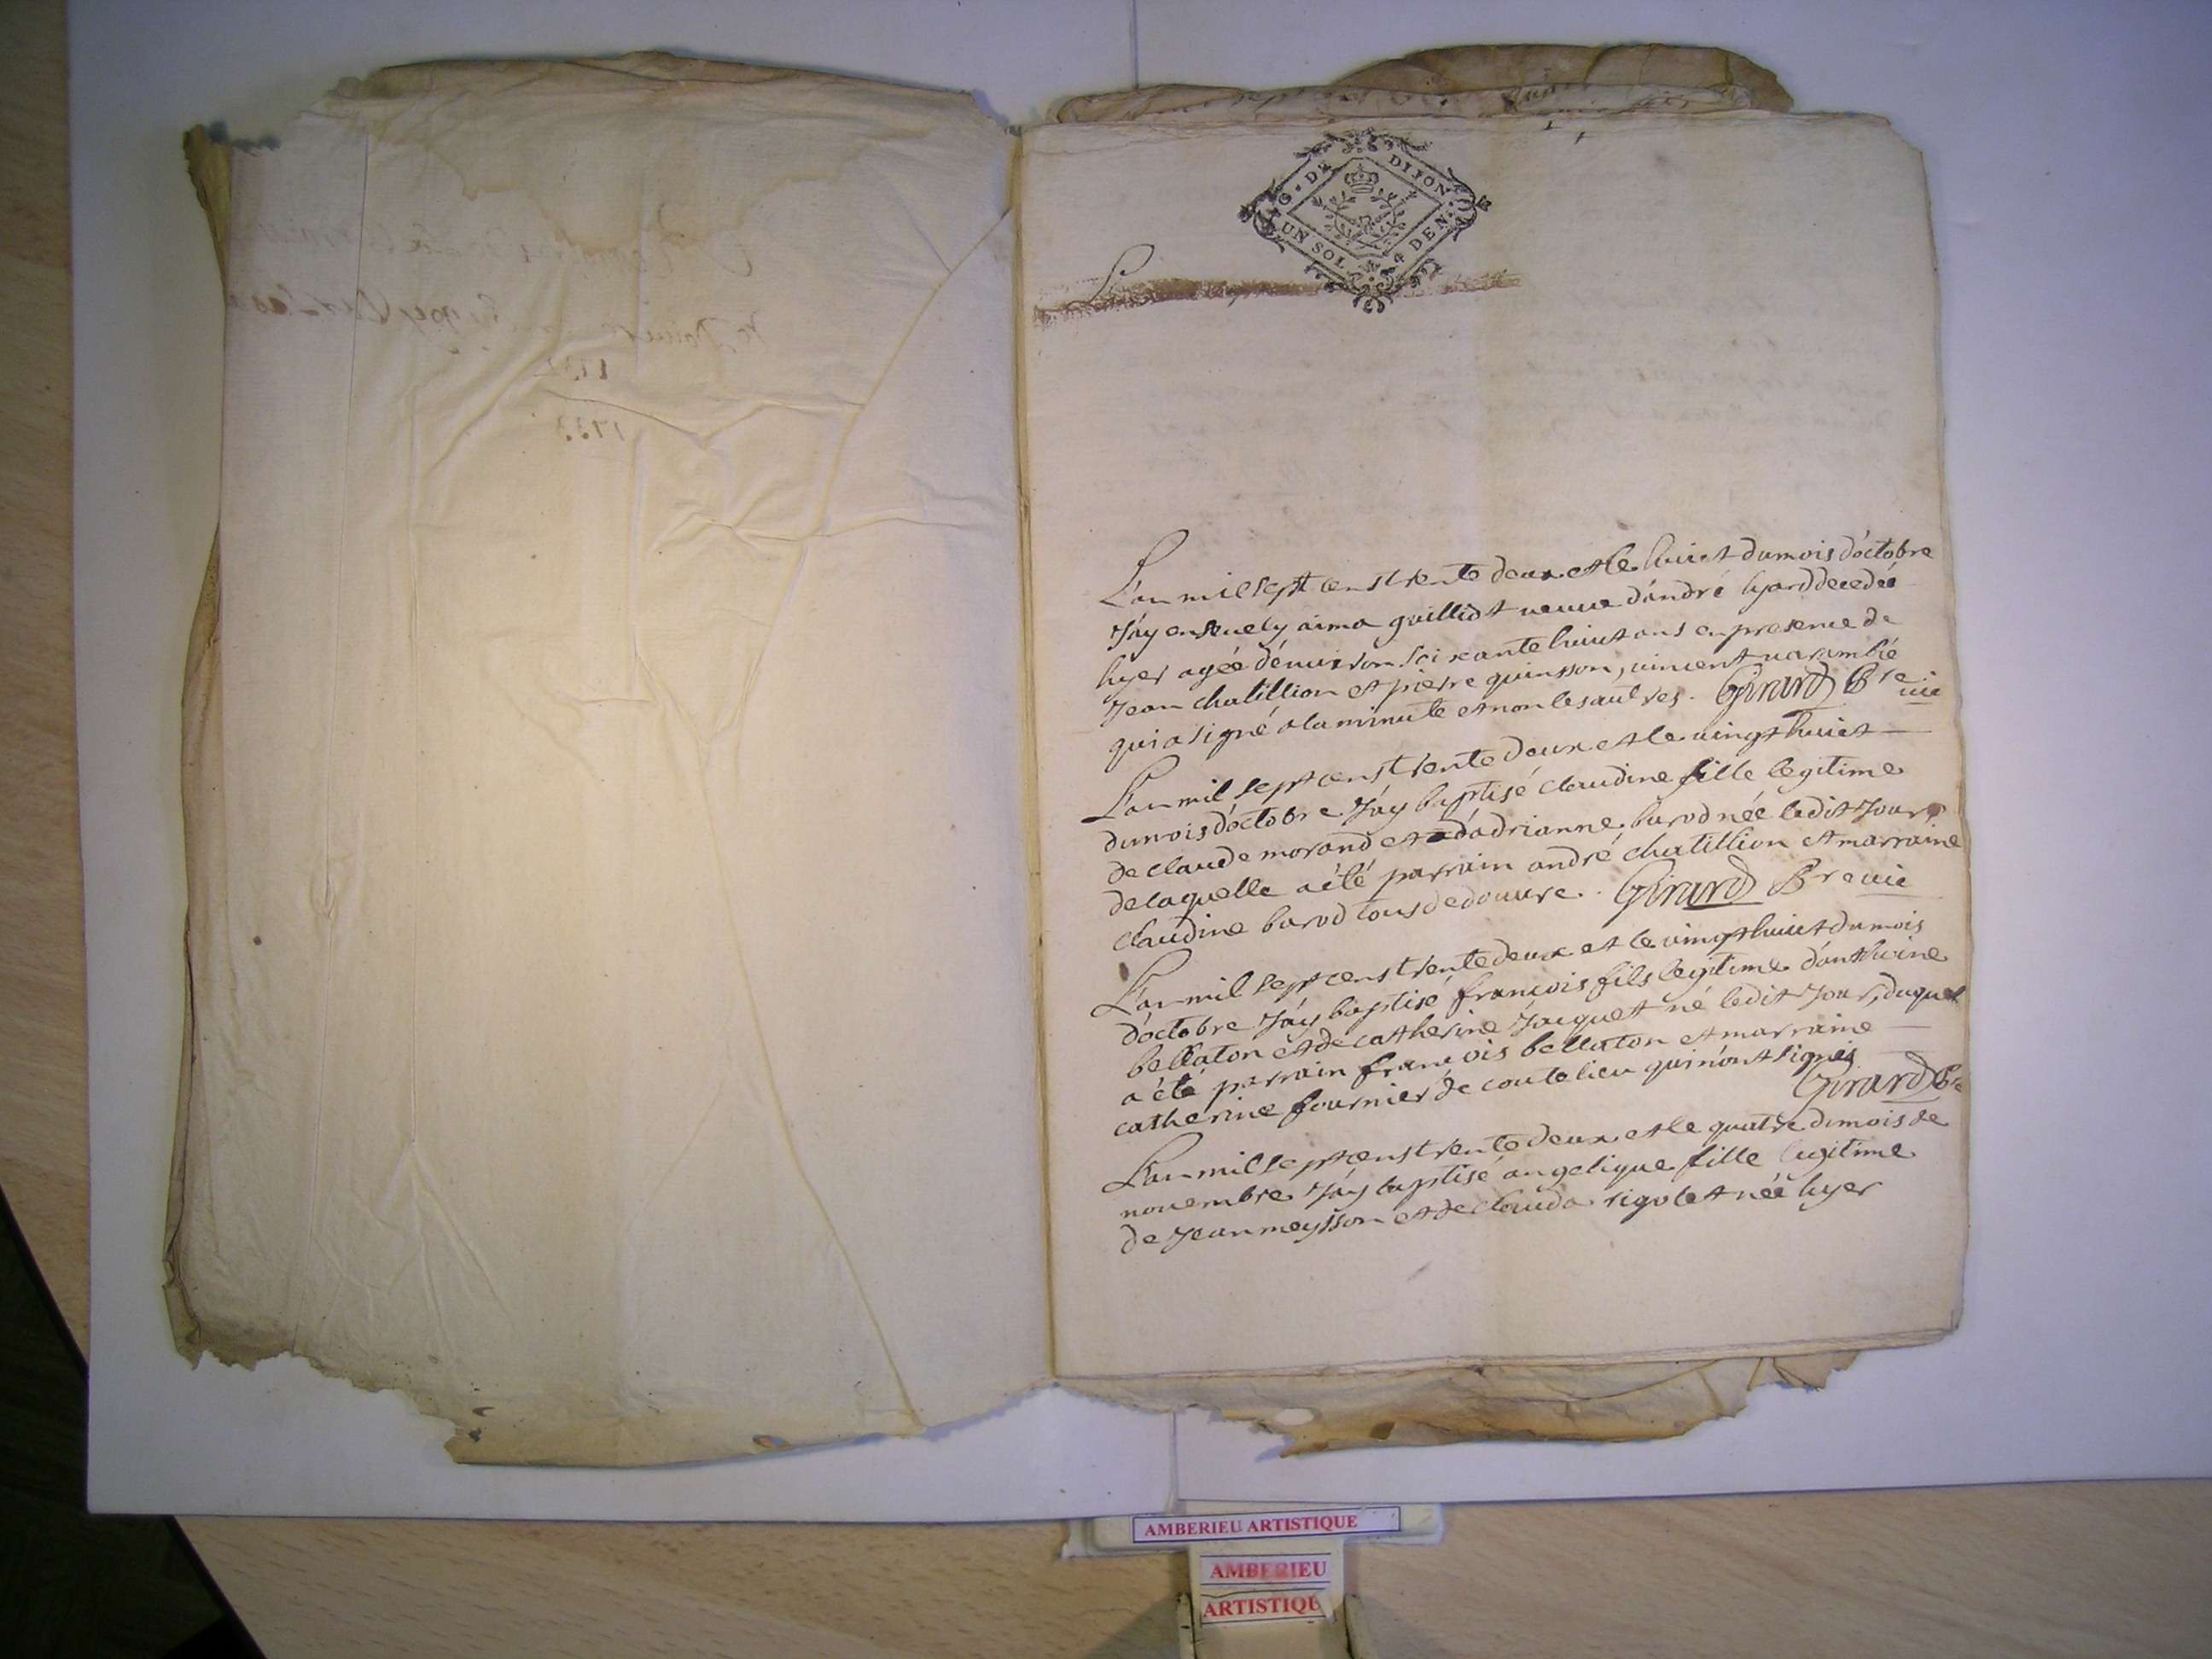 DE DIJON
UN SOL 4 DEN
L'an mil sept cens trente deux et le huict du mois d'octobre
J'ay enseuely aima guilliot ueuue d'andré lyard decedée
hyer agée d'enuiron soixante huict ans en presence de
Jean chatillion et pierre quinsson, uincent uarambié
qui a signé a la minute et non les autres. Girard Bre uic
L'an mil sept cens trente deux et le uingt huict
du mois d'octobre J'ay baptisé claudine fille legitime
de claude morand et d'adrianne barod née ledit Jour
de laquelle a été parrain andré chatillion et marraine
claudine barod tous de douure. Girard Bre uic
L'an mil sept cens trente deux et le uingt huict du mois
d'octobre J'ay baptisé francois fils legitime d'anthoine
bellaton et de catherine Jacquet né ledit Jour, duquel
a été parrain francois bellaton et marraine
catherine fournier de coutelieu qui n'ont signés
Girard Bre
L'an mil sept cens trente deux et le quatre du mois de
nouembre J'ay baptisé angelique fille legitime
de Jean meysson et de clauda rigolet née hyer
1732
1733
AMBERIEU ARTISTIQUE
AMBERIEU
ARTISTIQUE